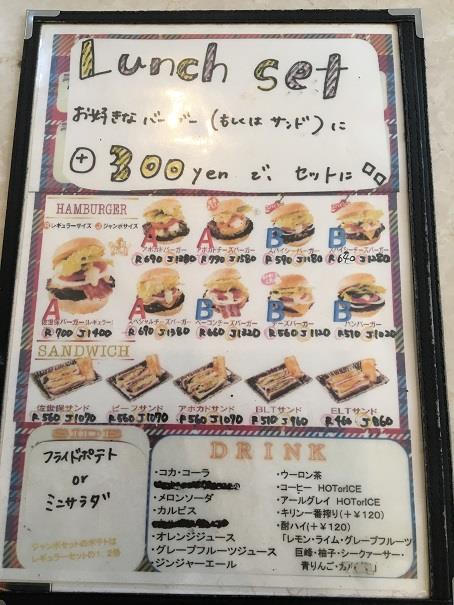 Lunch set
お好きなバーガー(もしくはサンド)に
+300yenで、セットに
HAMBURGER
レギュラーサイズ ジャンボサイズ
A A B B
アボカドバーガー アボカドチーズバーガー スパイシーバーガー スパイシーチーズバーガー
R690 J1380 R790 J1580 R590 J1180 R640 J1280
A A B B B
佐世保バーガー(レギュラー) スペシャルチーズバーガー ベーコンチーズバーガー チーズバーガー ハンバーガー
R700 J1400 R690 J1380 R660 J1320 R560 J1120 R510 J1020
SANDWICH
佐世保サンド ビーフサンド アボカドサンド BLTサンド ELTサンド
R560 J1090 R560 J1090 R560 J1090 R510 J960 R460 J860
SIDE
フライドポテト
or
ミニサラダ
ジャンボセットのポテトは
レギュラーセットの1.2倍
DRINK
・コカ・コーラ
・メロンソーダ
・カルピス
・オレンジジュース
・グレープフルーツジュース
・ジンジャーエール
・ウーロン茶
・コーヒー HOTorICE
・アールグレイ HOTorICE
・キリン一番搾り(+¥120)
・酎ハイ(+¥120)
「レモン・ライム・グレープフルーツ
巨峰・柚子・シークァーサー・
青りんご・